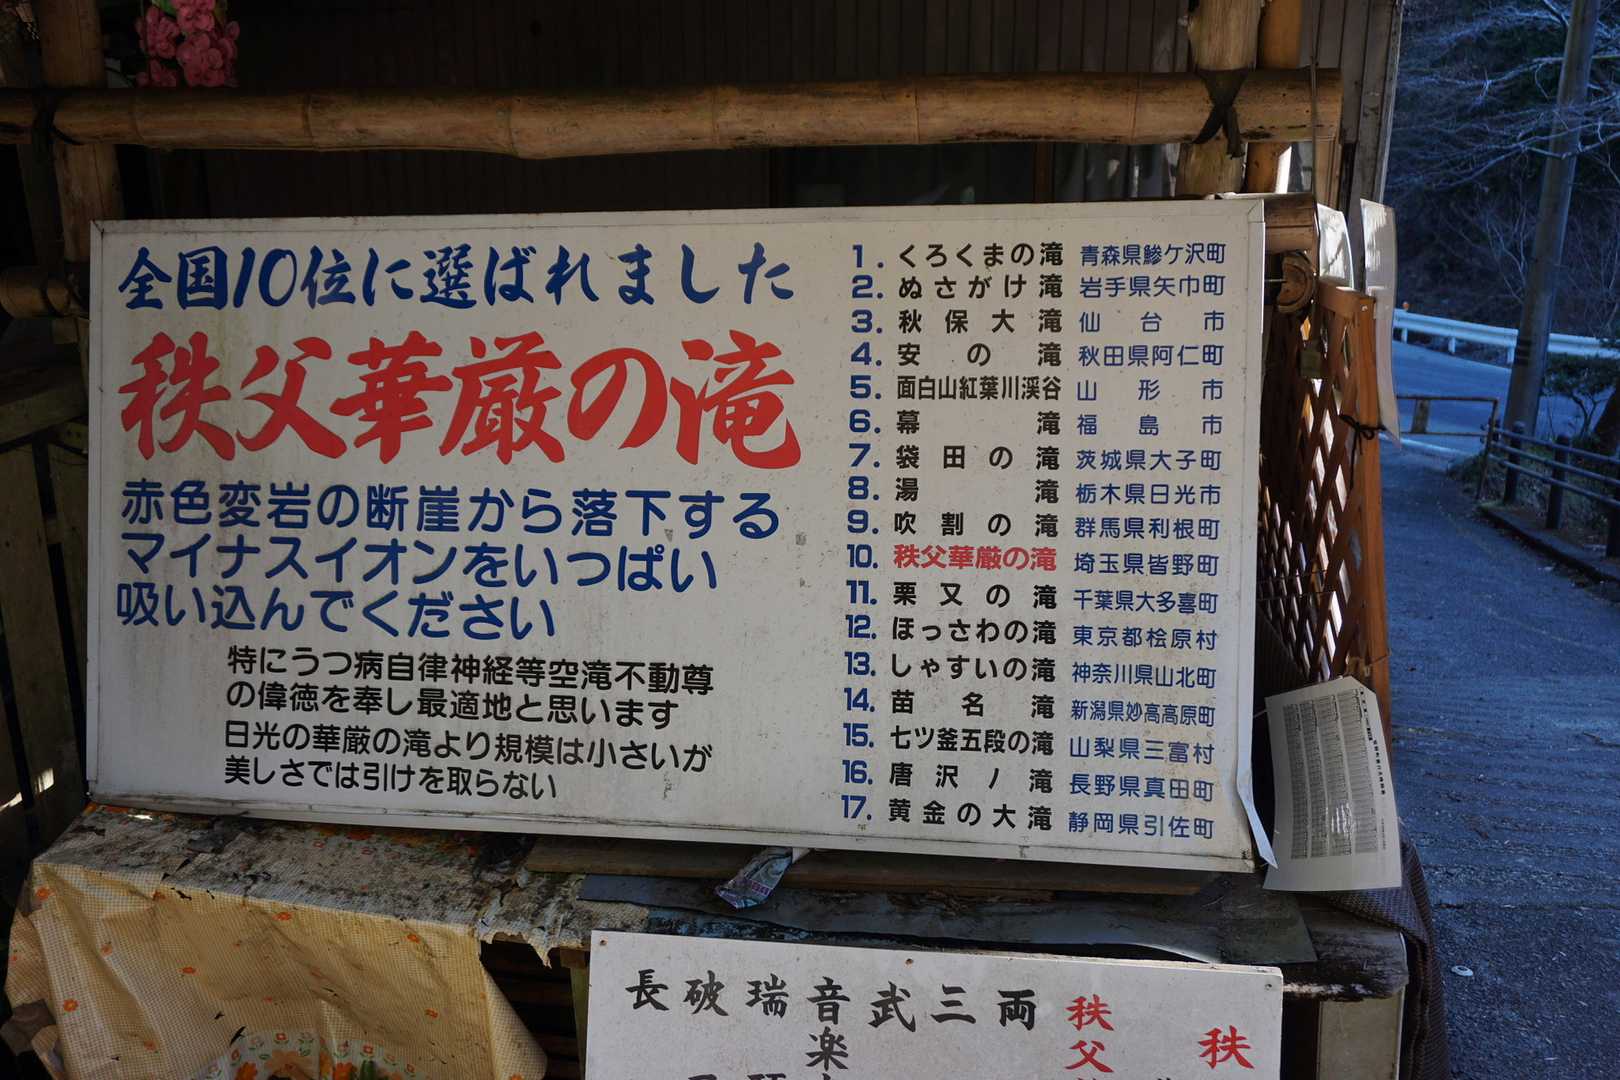 全国10位に選ばれました
秩父華厳の滝
赤色変岩の断崖から落下する
マイナスイオンをいっぱい
吸い込んでください
特にうつ病自律神経等空滝不動尊
の偉徳を奉し最適地と思います
日光の華厳の滝より規模は小さいが
美しさでは引けを取らない
1. くろくまの滝 青森県鰺ケ沢町
2. ぬさがけ滝 岩手県矢巾町
3. 秋保大滝 仙台市
4. 安の滝 秋田県阿仁町
5. 面白山紅葉川渓谷 山形市
6. 幕滝 福島市
7. 袋田の滝 茨城県大子町
8. 湯滝 栃木県日光市
9. 吹割の滝 群馬県利根町
10. 秩父華厳の滝 埼玉県皆野町
11. 栗又の滝 千葉県大多喜町
12. ほっさわの滝 東京都桧原村
13. しゃすいの滝 神奈川県山北町
14. 苗名滝 新潟県妙高高原町
15. 七ツ釜五段の滝 山梨県三富村
16. 唐沢ノ滝 長野県真田町
17. 黄金の大滝 静岡県引佐町
秩
秩父
両
三
武
音楽
瑞
破
長